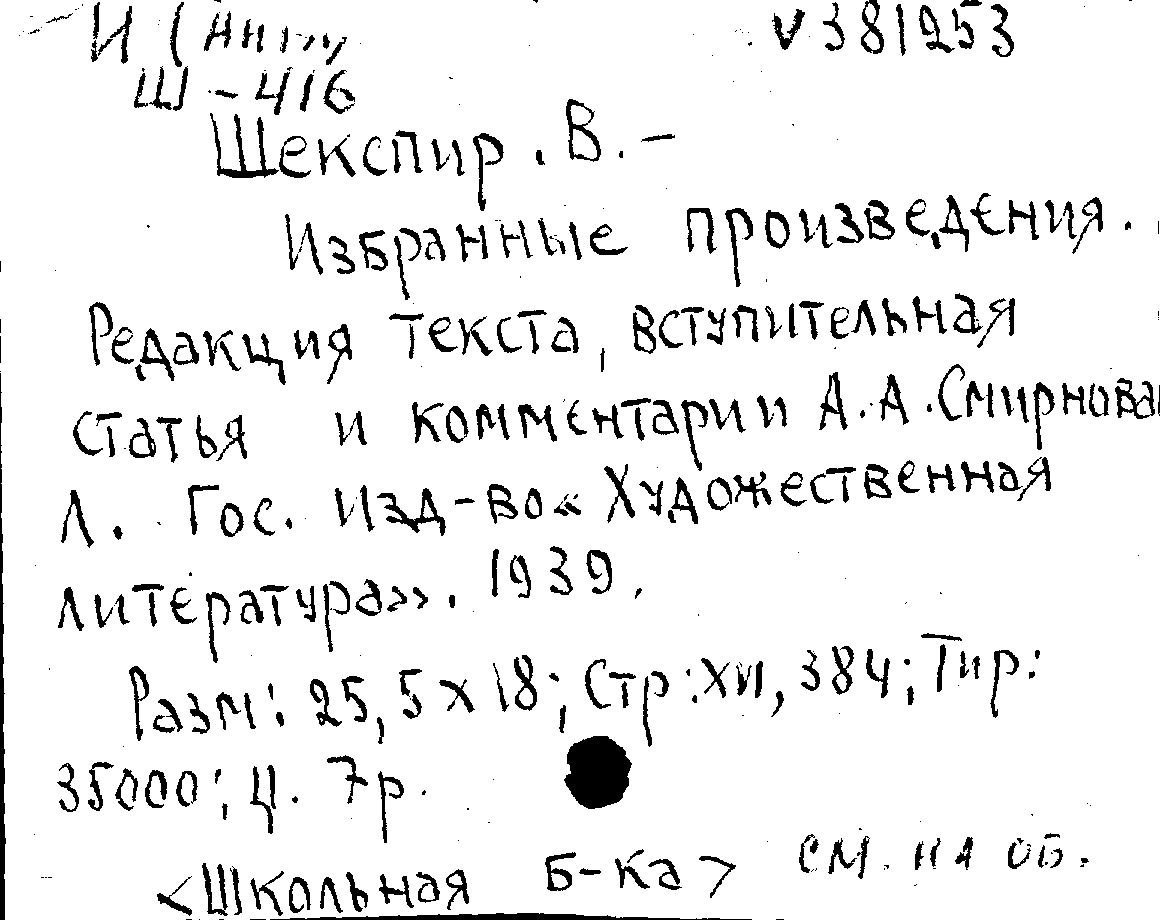 И (Англ)
V 381253
Ш-416
Шекспир. В. –
Избранные произведения.
Редакция текста, вступительная
статья и комментарии А.А.Смирнова
Л. Гос. Изд-во «Художественная
литература». 1939.
Разм: 25,5 x 18; Стр: XVI, 384; Тир:
35000; Ц. 7р.
<Школьная Б-ка> см. на об.